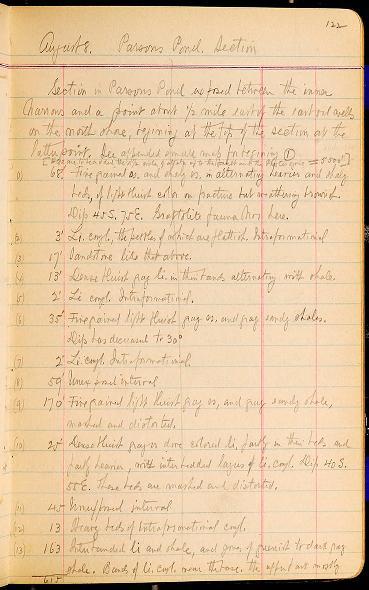 122
August 8. Parsons Pond. Section
Section in Parsons Pond exposed between the inner
narrows and a point about 1/2 mile east of the east oil wells
on the north shore, beginning at the top of the section at the
latter point. See appended map for beginning ①
= 5000']
(1) 68' Fine grained ss. and shaly ss. in alternating heavier and shaly
beds, of light bluish color on fracture but weathering brownish.
Dip 45 S. 75 E. Graptolite fauna here.
(2) 3' Li. congl., the pebbles of which are flattish. Intraformational
(3) 17' Sandstone like that above.
(4) 13' Dense bluish gray li. in thin bands alternating with shale.
(5) 2' Li congl. Intraformational.
(6) 35' Fine grained light bluish gray ss. and gray sandy shales.
Dip has decreased to 30°
(7) 2' Li. congl. Intraformational.
(8) 59' Unexposed interval
(9) 170' Fine grained light bluish gray ss, and gray sandy shale,
mashed and distorted.
(10) 25' Dense bluish gray or dove colored li, partly in thin beds and
partly heavier, with interbedded layers of li. congl. Dip 40 S.
55 E. These beds are mashed and distorted.
(11) 45 Unexposed interval
(12) 13 Heavy beds of intraformational congl.
(13) 163 Interbanded li and shale, and some of greenish to dark gray
shale. Bands of li. congl. near the base. The upper part mostly
615